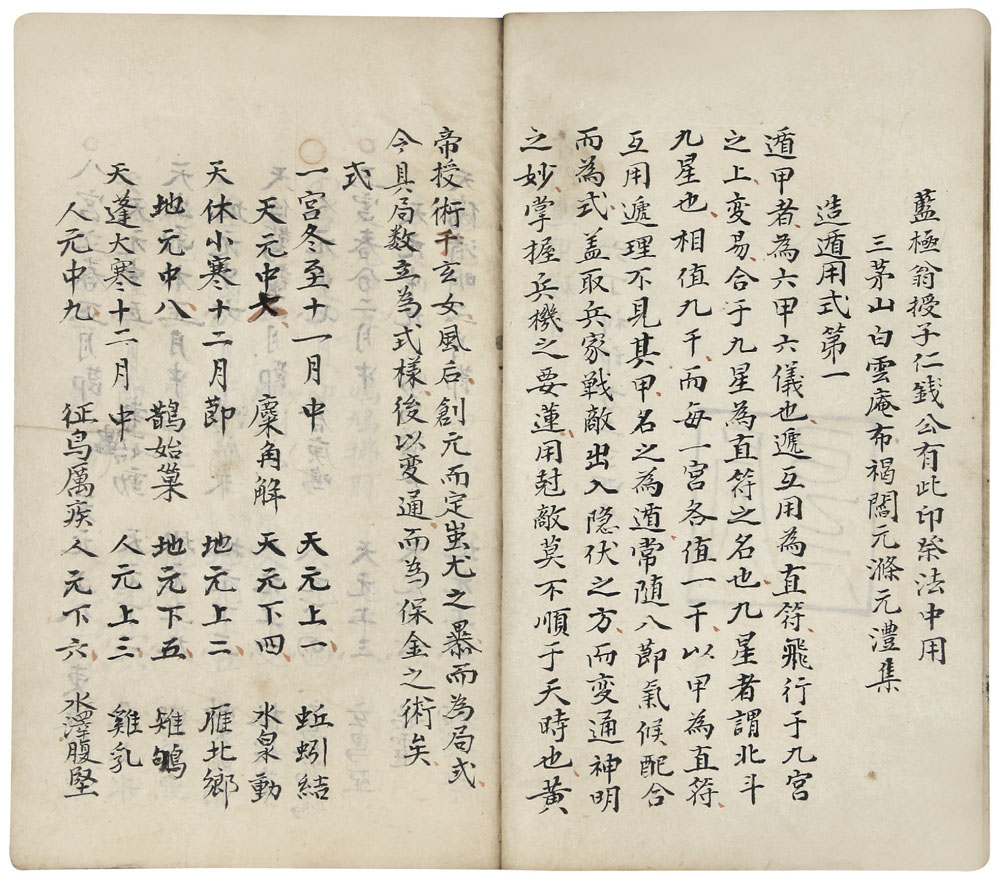 藍極翁授子仁錢公有此印祭法中用
三茅山白雲庵布褐闔元滌元澧集
造遁用式第一
遁甲者為六甲六儀也遞互用為直符飛行于九宮
之上变易合于九星為直符之名也九星者謂北斗
九星也相值九千而每一宮各值一千以甲為直符
互用遞理不見其甲名之為遁常随八節氣候配合
而為式盖取兵家戦敵出入隐伏之方而变通神明
之妙掌握兵機之要蓮用尅敵莫不順于天時也黃
帝授術于玄女風后創元而定蚩尤之暴而為局式
今具局数立為式樣後以变通而為保金之術矣
式
○一宮冬至十一月中 天元上一 蚯蚓結
天元中七 麋角解 天元下四 水泉動
天休小寒十二月節 地元上二 雁北鄉
地元中八 鵲始巢 地元下五 雉鴝
天蓬大寒十二月中 人元上三 雞乳
人元中九 征鸟厲疾 人元下六 水澤腹堅